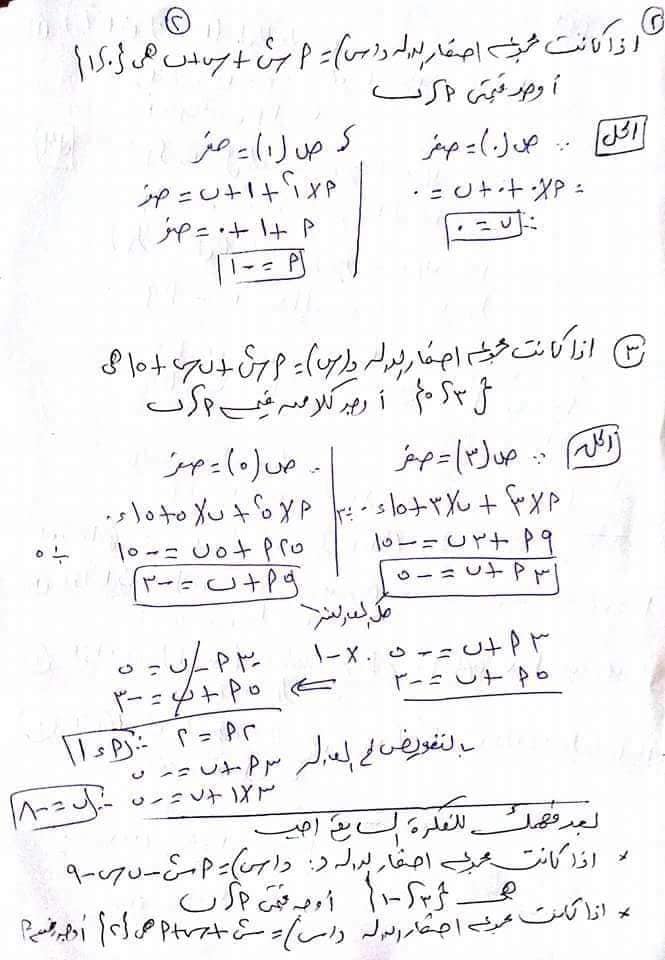 ٢
٢ اذا كانت مجموعة اصفار الدالة د(س) = م س٢ + س + ب هى {٠، ١}
أوجد قيمتى م، ب
الحل ∵ ص(٠) = صفر
= م×٠ + ٠ + ب = ٠
∴ ب = ٠
، ص(١) = صفر
م×١٢ + ١ + ب = صفر
م + ١ + ٠ = صفر
م = -١
٣ اذا كانت مجموعة اصفار الدالة د(س) = م س٢ + ب س + ١٥ هى
{٣، ٥} أوجد كلا من قيمة م، ب
الحل ∵ ص(٣) = صفر
م×٣٢ + ب×٣ + ١٥ = ٠ ÷٣
٩م + ٣ب = -١٥
٣م + ب = -٥
∵ ص(٥) = صفر
م×٥٢ + ب×٥ + ١٥ = ٠
٢٥م + ٥ب = -١٥ ÷٥
٩م + ب = -٣
حل المعادلتين
٣م + ب = -٥ ×-١
٥م + ب = -٣
-٣م - ب = ٥
٥م + ب = -٣
٢م = ٢ ∴ م = ١
بالتعويض فى المعادلة
٣م + ب = -٥
٣×١ + ب = -٥ ∴ ب = -٨
بعد فهمك للفكرة السابقة اجب
* اذا كانت مجموعة اصفار الدالة د: د(س) = م س٢ - ب س - ٩
هى {٣، -١} أوجد قيمتى م، ب
* اذا كانت مجموعة اصفار الدالة د(س) = س٢ + س + م هى {٢} أوجد قيمة م